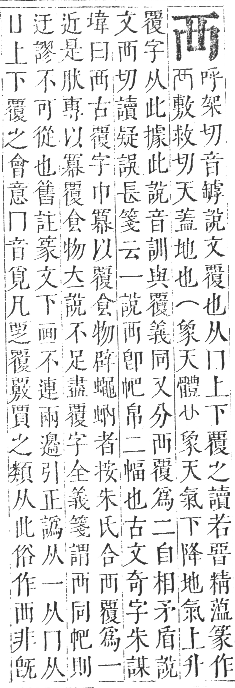 襾
呼架切音罅說文覆也从冂上下覆之讀若晉精薀篆作
襾敷救切天蓋地也𠆢象天體㣺象天氣下降地氣上升
覆字从此據此說音訓與覆義同又分襾覆爲二自相矛盾說
文襾切讀疑誤長箋云一說襾卽帊帛二幅也古文奇字朱謀
㙔曰襾古覆字巾冪以覆食物辟蠅蚋者按朱氏合襾覆爲一
近是肰專以冪覆食物大說不足盡覆字全義箋謂襾同帊則
迂謬不可從也舊註篆文下不連兩邉引正譌从一从冂从
凵上下覆之會意冂音覓凡覂覆覈賈之類从此俗作襾非旣